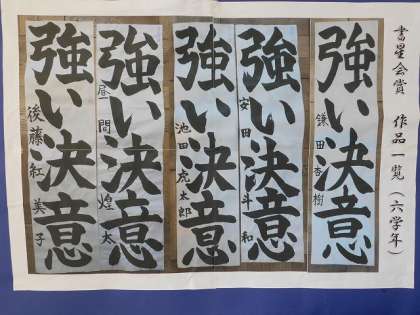 書星会賞 作品一覧(六学年)
強い決意
鎌田杏樹
強い決意
安田斗和
強い決意
池田虎太郎
強い決意
昼間煌太
強い決意
後藤紅美子